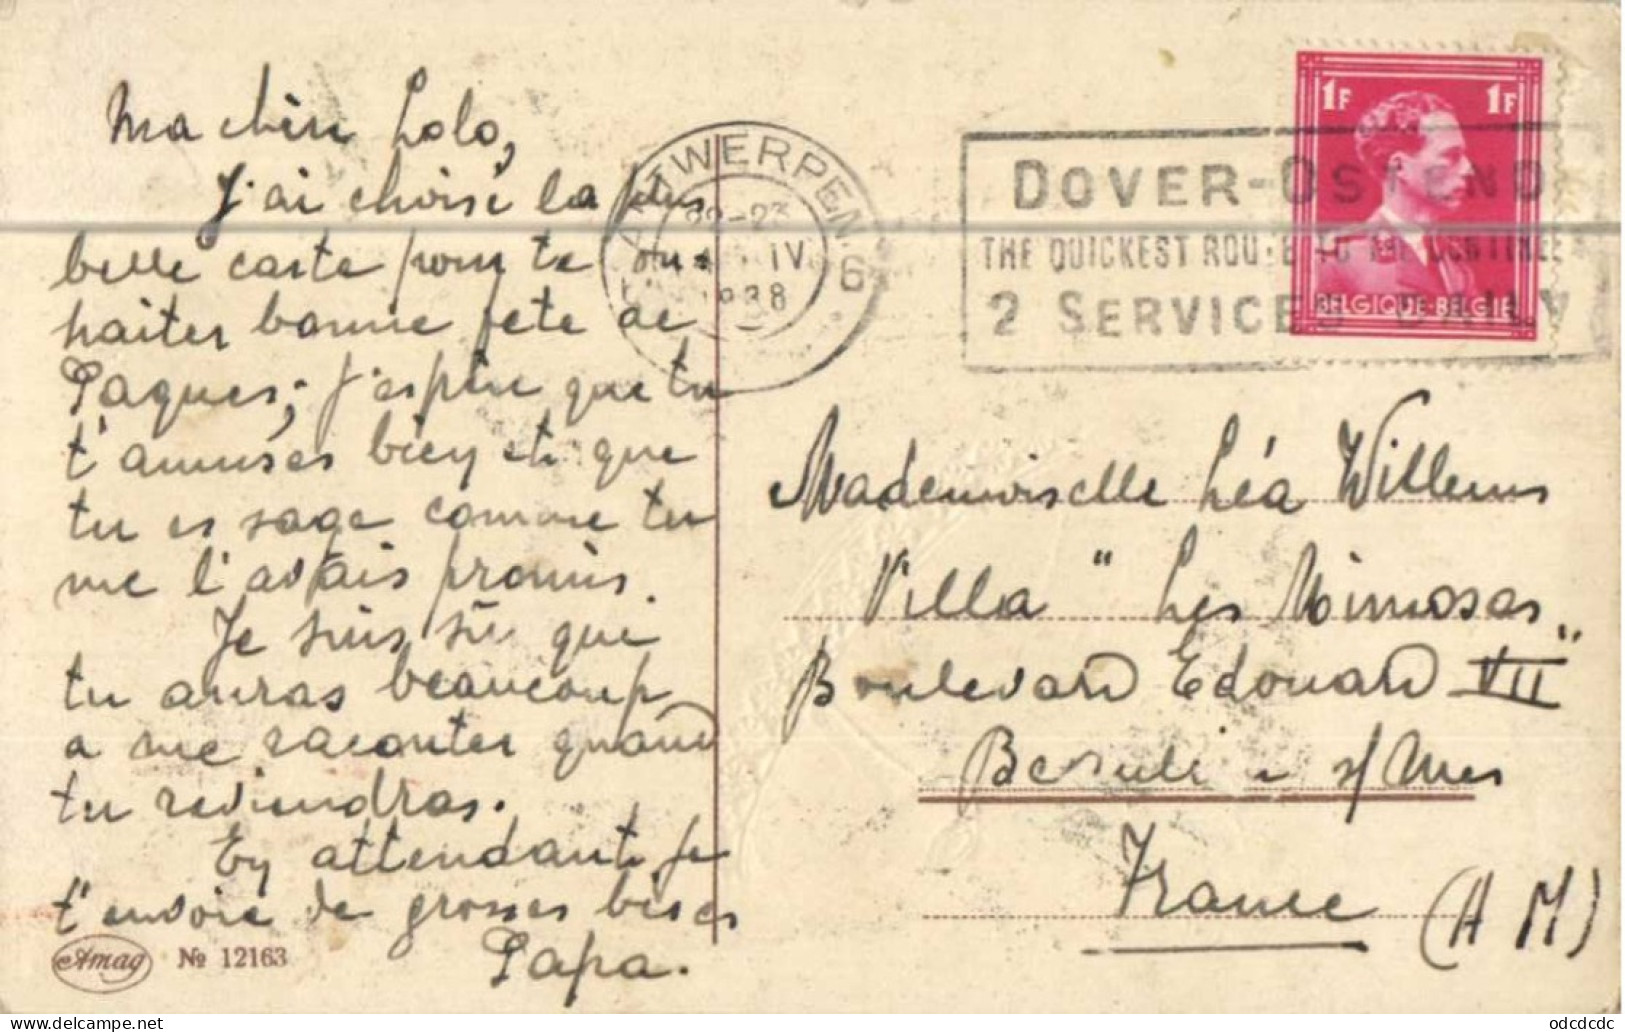 Ma chère Lolo,
J'ai choisi la plus
belle carte pour te sou-
haiter bonne fete de
Paques; j'espère que tu
t'amuses bien et que
tu es sage comme tu
me l'avais promis.
Je suis sûr que
tu auras beaucoup
a me raconter quand
tu reviendras.
En attendant je
t'envoie de grosses bises
Papa.
Amag № 12163
ANTWERPEN 6
22-23
IV
1938
DOVER-OSTEND
THE QUICKEST ROUTE TO THE CONTINENT
2 SERVICES DAILY
1F 1F
BELGIQUE-BELGIE
Mademoiselle Léa Willems
Villa "Les Mimosas"
Boulevard Edouard VII
s/Mer
France (A M)
odcdcdc